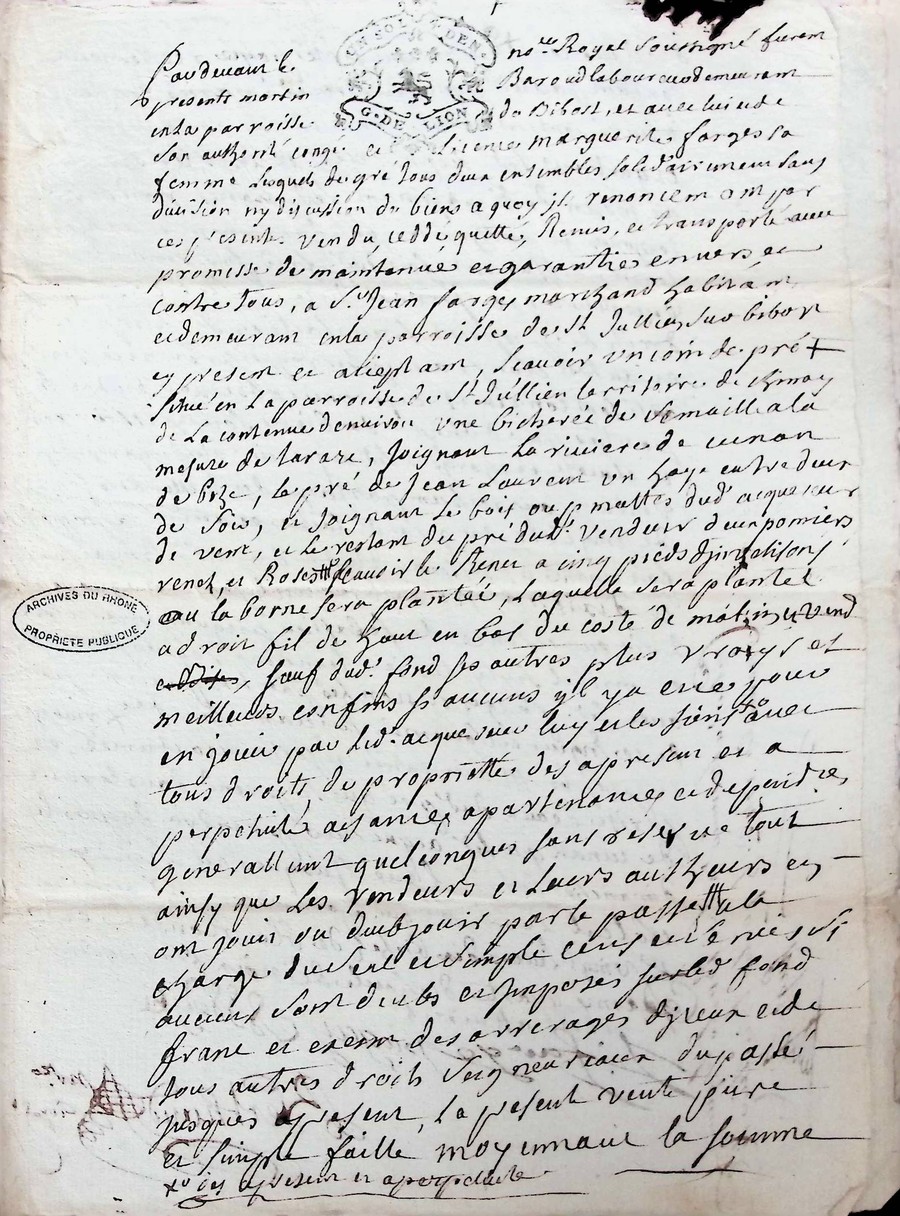 UN SOL DEN.
G. DE LION
Pardevant le no.re Royal Soussigné furent
presents martin Baroud laboureur demeurant
en la parroisse de Bibost, et avec lui et de
son authorité congé et Licence marguerite farges sa
femme Lesquels de gré tous deux ensembles solidairement sans
division ny discussion de biens a quoy jls renoncent ont par
ces presentes vendu, ceddé, quitté, Remis, et transporté avec
promesse de maintenue et garanties envers et
contre tous, a Sr. Jean farges marchand habitant
et demeurant en la parroisse de St Jullien sur bibost
cy present et acceptant, Scavoir un coin de pré +
Situé en La parroisse de St Jullien territoire de
de La contenue d'environ une bicherée de Semaille a la
mesure de tarare, Joignant La riviere de
de bize, le pré de Jean Laurent un haye entre deux
de Soir, et Joignant le bois dud. acquereur
de vent, et le restant du pré dud. vendeur deux pomiers
venet, et
ou la borne sera plantée, Laquelle sera plantée
a droit fil de haut en bas du costé de matin
sauf dud. fond ses autres plus vrays et
meilleurs confins si aucuns y'l ya et ce pour
en jouir par led. acquereur luy et les siens + avec
tous droits de proprietté des apresent et a
perpetuité aysances apartenances et dependces
generallement quelconques sans reserve tout
ainsy que Les vendeurs et Leurs autheurs en
ont jouis ou deub jouir par le passé a la
charge du Seul et simple cens et servis si
aucuns sont deubs et jmposés sur led. fond
franc et exempt des arrerages d'jceux et de
tous autres droits Seigneuriaux du passé
jusques apresent, La presente vente pure
et simple faitte moyennant la somme
+ des apresent et a perpetuité
ARCHIVES DU RHONE
PROPRIETE PUBLIQUE